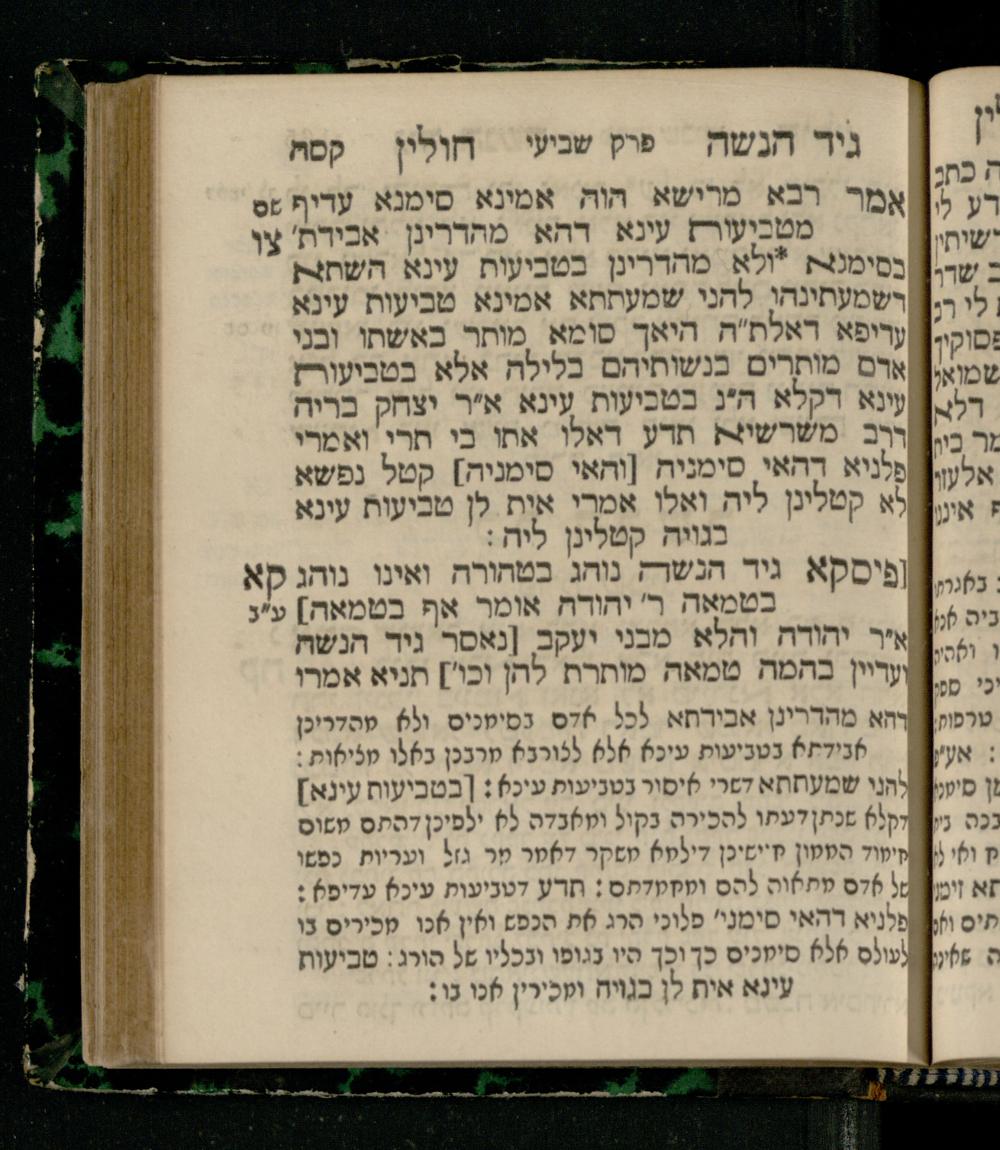 גיד הנשה פרק שביעי חולין קסה
אמר רבא מרישא הוה אמינא סימנא עדיף שם
מטביעות עינא דהא מהדרינן אבידת' צו
בסימנא *ולא מהדרינן בטביעות עינא השתא
דשמעתינהו להני שמעתתא אמינא טביעות עינא
עדיפא דאלת"ה היאך סומא מותר באשתו ובני
אדם מותרים בנשותיהם בלילה אלא בטביעות
עינא דקלא ה"נ בטביעות עינא א"ר יצחק בריה
דרב משרשיא תדע דאלו אתו בי תרי ואמרי
פלניא דהאי סימניה [והאי סימניה] קטל נפשא
לא קטלינן ליה ואלו אמרי אית לן טביעות עינא
בגויה קטלינן ליה :
[פיסקא גיד הנשה נוהג בטהורה ואינו נוהג קא
בטמאה ר' יהודה אומר אף בטמאה] ע"ב
א"ר יהודה והלא מבני יעקב [נאסר גיד הנשה
ועדיין בהמה טמאה מותרת להן וכו'] תניא אמרו
דהא מהדרינן אבידתא לכל אדם בסימנים ולא מהדרינן
אבידתא בטביעות עינא אלא לצורבא מרבנן באלו מציאות :
להני שמעתתא דשרי איסור בטביעות עינא : [בטביעות עינא]
דקלא שנתן דעתו להכירה בקול ומאבדה לא ילפינן דהתם משום
חימוד הממון חיישינן דילמא משקר דאמר מר גזל ועריות נפשו
של אדם מתאוה להם ומחמדתם : תדע דטביעות עינא עדיפא :
פלניא דהאי סימני' פלוני הרג את הנפש ואין אנו מכירים בו
לעולם אלא סימנים כך וכך היו בגופו ובכליו של הורג : טביעות
עינא אית לן בגויה ומכירין אנו בו :